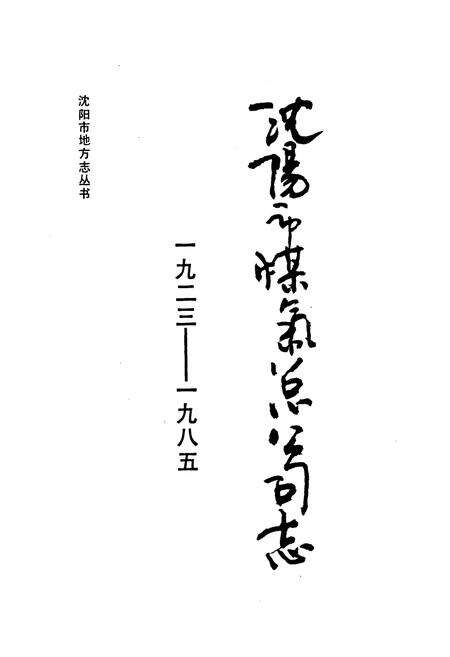 沈陽市煤氣总公司志
一九二三——一九八五
沈阳市地方志丛书